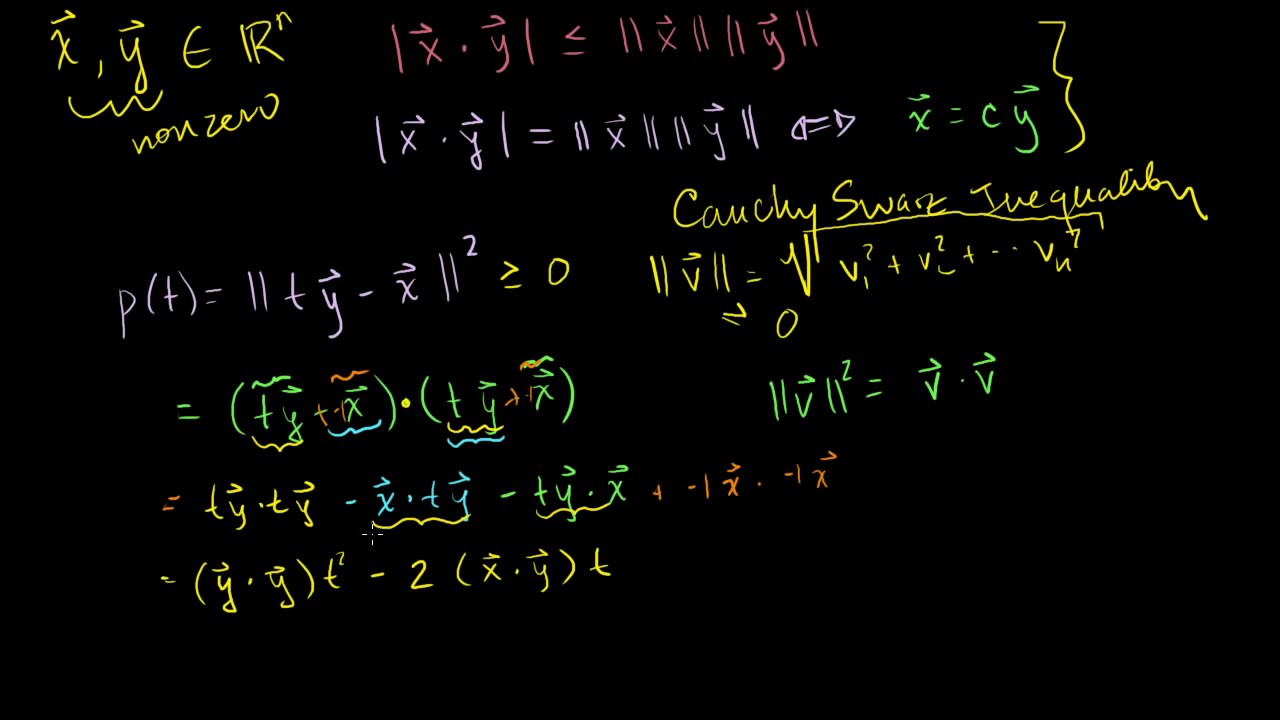 x⃗, y⃗ ∈ ℝⁿ
nonzero
|x⃗ · y⃗| ≤ ||x⃗|| ||y⃗||
|x⃗ · y⃗| = ||x⃗|| ||y⃗|| ⟺ x⃗ = c y⃗
Cauchy Swarz Inequality
p(t) = ||t y⃗ - x⃗||² ≥ 0
||v⃗|| = √(v₁² + v₂² + ··· vₙ²)
≥ 0
= (t y⃗ + -1 x⃗) · (t y⃗ + -1 x⃗)
||v⃗||² = v⃗ · v⃗
= t y⃗ · t y⃗ - x⃗ · t y⃗ - t y⃗ · x⃗ + -1 x⃗ · -1 x⃗
= (y⃗ · y⃗) t² - 2 (x⃗ · y⃗) t